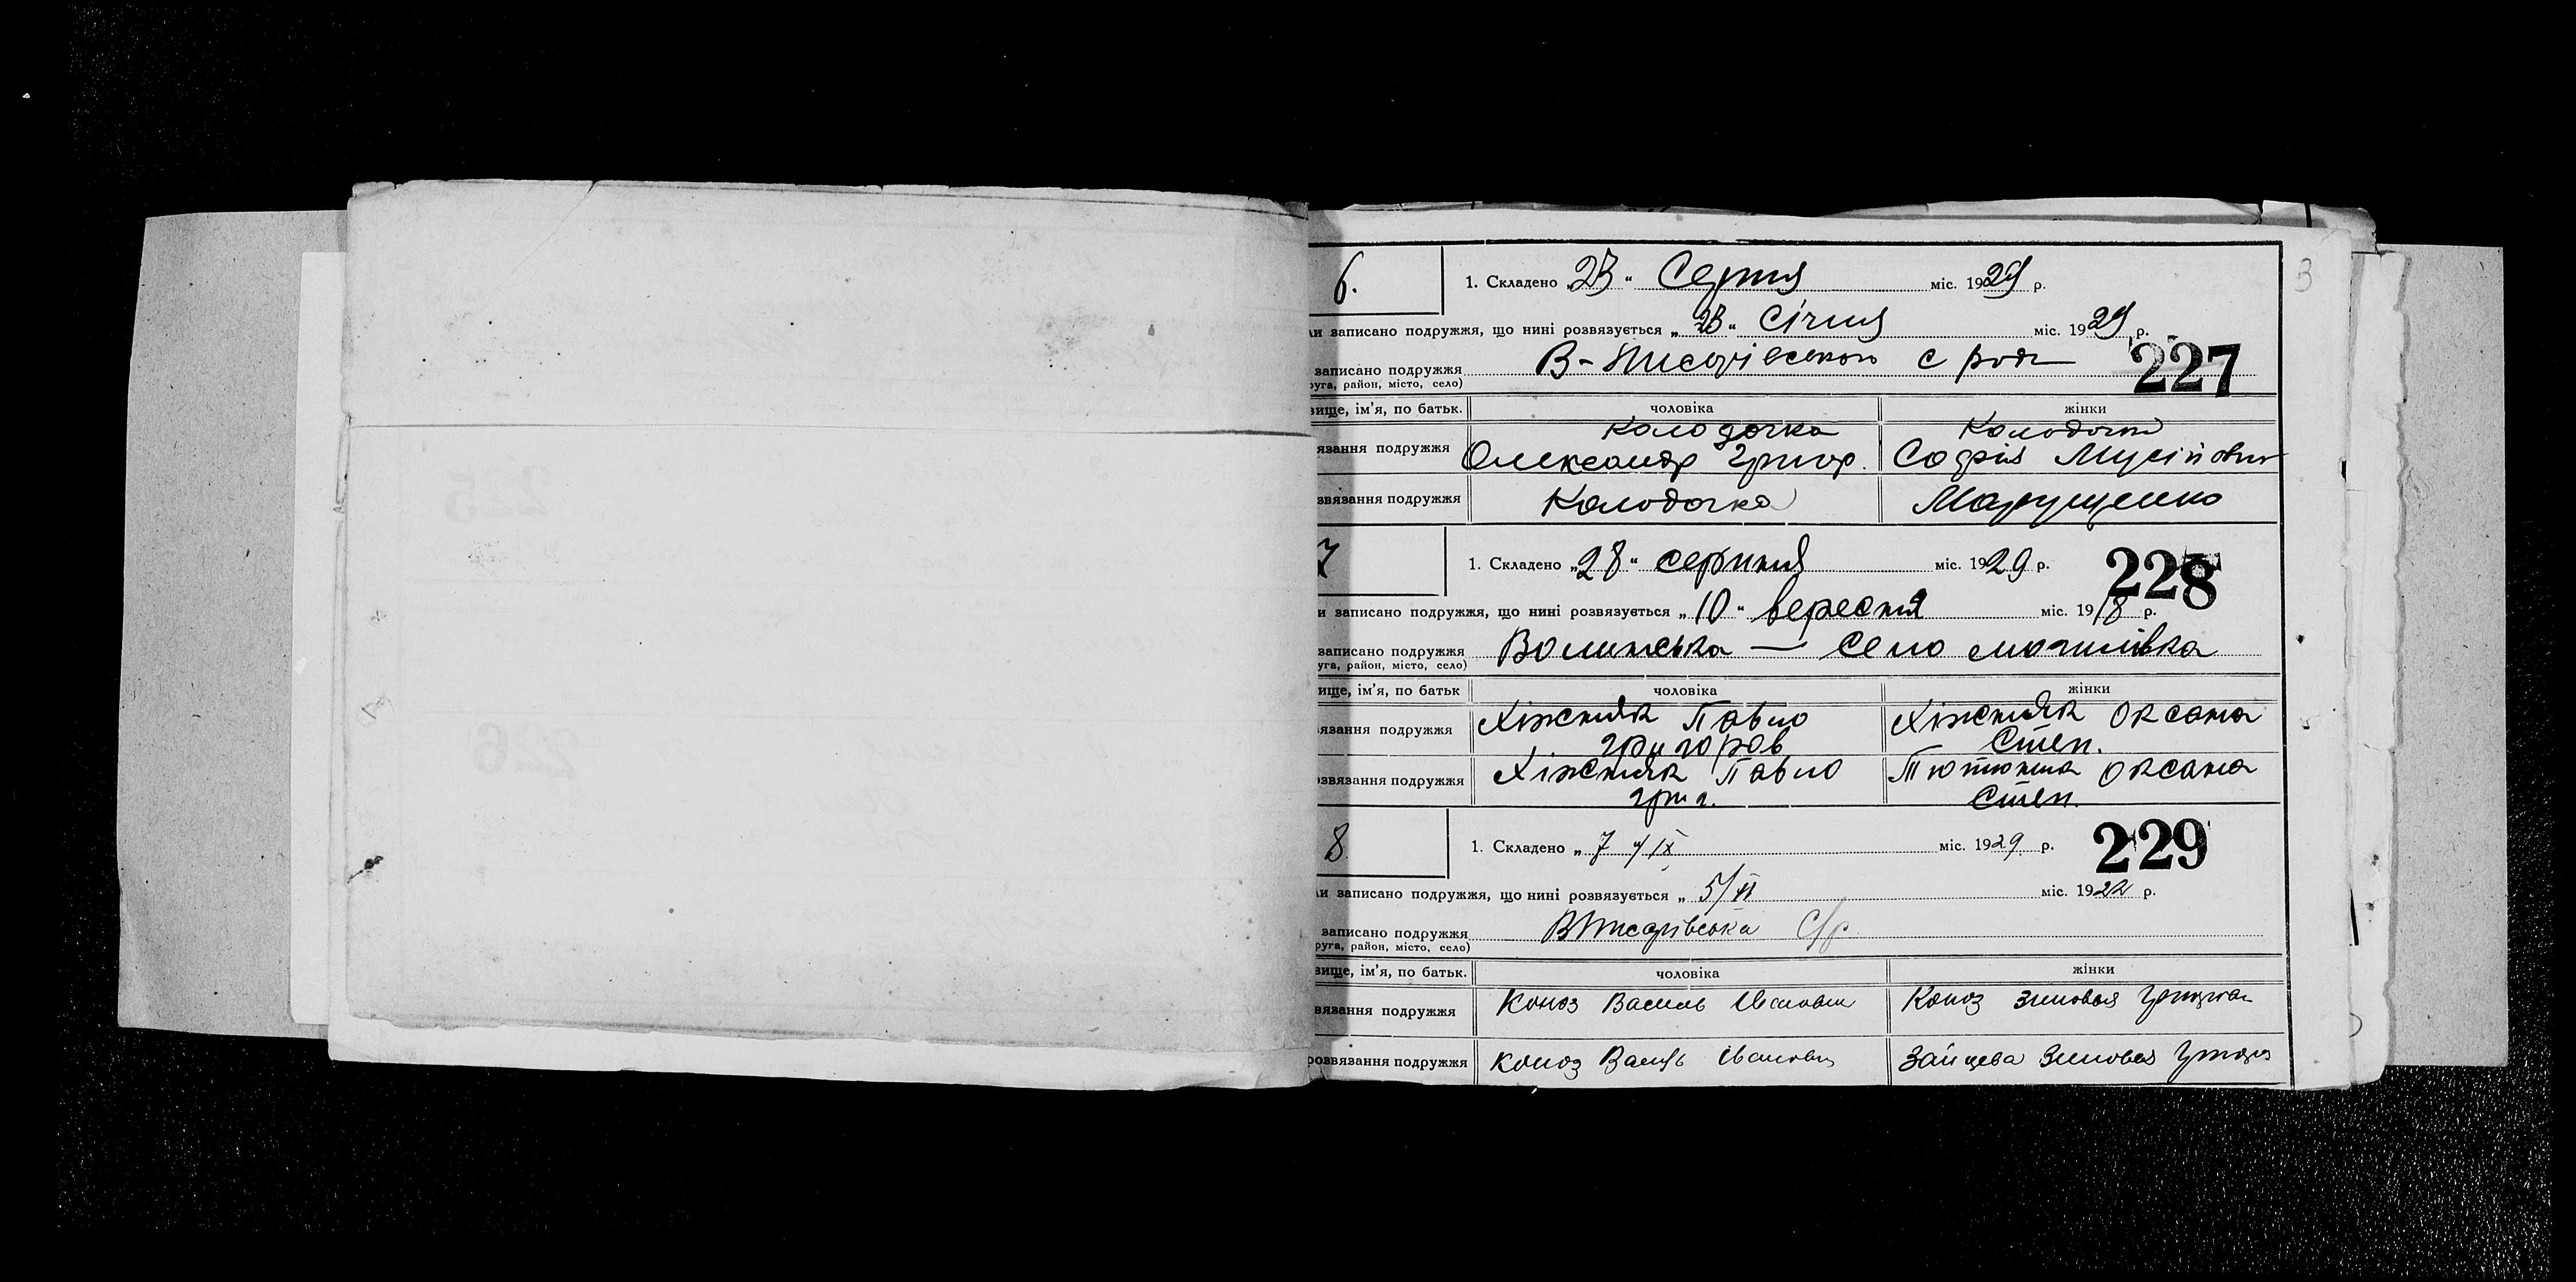 3
6.
1. Складено „23“ Серпня міс. 1929 р.
ли записано подружжя, що нині розвязується „23“ Січня міс. 1929 р.
227
записано подружжя В-Писарівською с рад
руга, район, місто, село)
вище, ім'я, по батьк. чоловіка жінки
язання подружжя Колодочка Олександр Григор. Колодочка Софія Мусіївн
звязання подружжя Колодочка Марущенко
7
1. Складено „28“ серпня міс. 1929 р.
228
и записано подружжя, що нині розвязується „10“ вересня міс. 1918 р.
записано подружжя Волинська — село могилівка
уга, район, місто, село)
ище, ім'я, по батьк чоловіка жінки
язання подружжя Хіжняк Павло григоров Хіжняк Оксана Степ.
звязання подружжя Хіжняк Павло григ. Тютюнна Оксана Степ.
8
1. Складено „ 7 “/IX міс. 1929 р.
229
ли записано подружжя, що нині розвязується „ 5/XI міс. 1922 р.
записано подружжя ВПисарівська С/р
руга, район, місто, село)
вище, ім'я, по батьк. чоловіка жінки
вязання подружжя Коноз Василь Іванович Коноз Зиновья
розвязання подружжя Коноз Василь Іванович Зайцева Зиновья